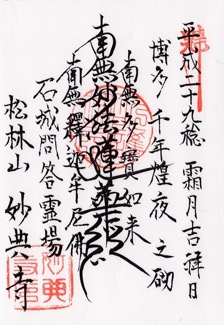 平成二十九稔 霜月吉祥日
博多 千年煌夜 之砌
南無多寳如来
南無妙法蓮華経
南無釋迦牟尼佛
石城問答霊場
松林山 妙典寺